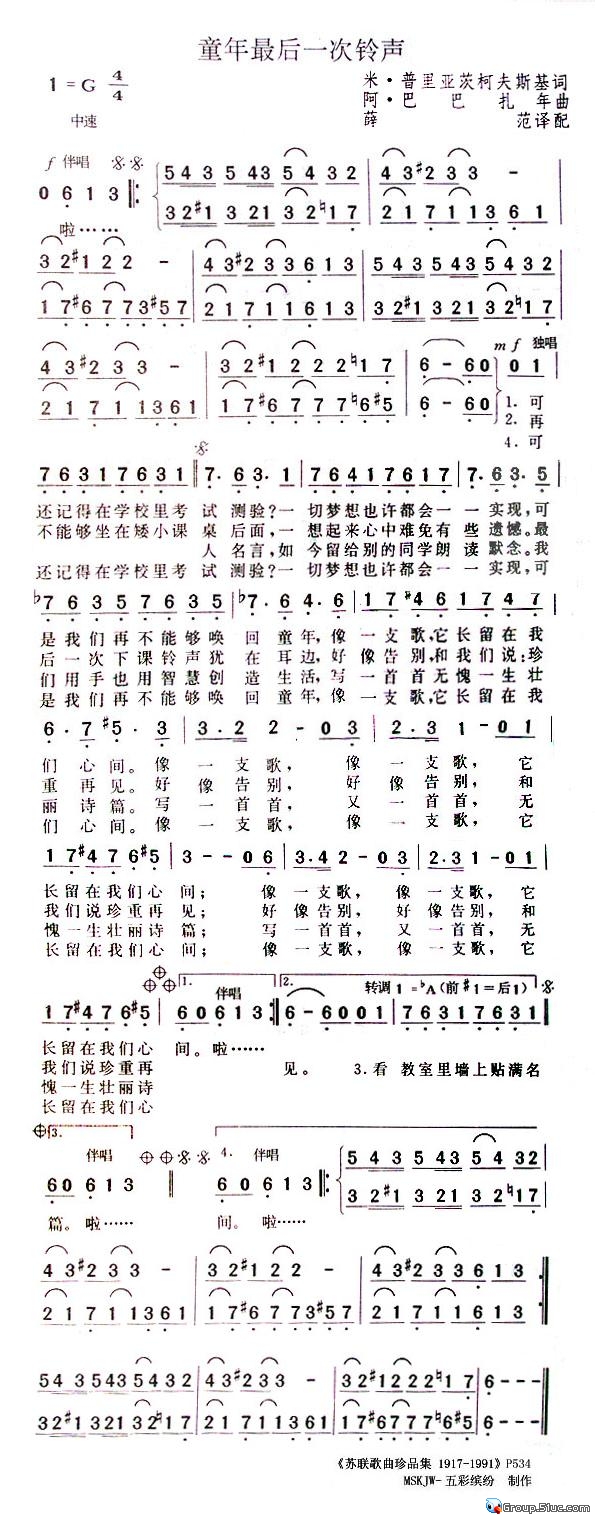 童年最后一次铃声
1=G 4/4
米·普里亚茨柯夫斯基词
阿·巴巴扎年曲
薛范译配
中速
f 伴唱
0 6 1 3
5 4 3 5 4 3 5 4 3 2 4 3 #2 3 –
3 2 #1 3 2 1 3 2 ♮1 7 2 1 7 1 1 3 6 1
啦……
3 2 #1 2 2 – 4 3 #2 3 3 6 1 3 5 4 3 5 4 3 5 4 3 2
1 7 #6 7 7 3 #5 7 2 1 7 1 1 6 1 1 3 2 #1 3 2 1 3 2 ♮1 7
4 3 #2 3 3 – 3 2 #1 2 2 2 ♮1 7 6 – 6 0
2 1 7 1 1 3 6 1 1 7 #6 7 7 7 #6 #5 6 – 6 0
mf 独唱
0 1
1. 可
2. 再
4. 可
7 6 3 1 7 6 3 1 7· 6 3· 1 7 6 4 1 7 6 1 7 7· 6 3· 5
还记得在学校里考试测验?一切梦想也许都会一一实现,可
不能够坐在矮小课桌后面,一想起来心中难免有些遗憾。最
人名言,如今留给别的同学朗读默念。我
还记得在学校里考试测验?一切梦想也许都会一一实现,可
♭7 6 3 5 7 6 3 5 ♭7· 6 4· 6 1 7 #4 6 1 7 4 7
是我们再不能够唤回童年,像一支歌,它长留在我
后一次下课铃声犹在耳边,好像告别,和我们说:珍
们用手也用智慧创造生活,写一首首无愧一生壮
是我们再不能够唤回童年,像一支歌,它长留在我
6· 7 #5· 3 3· 2 2 – 0 3 2· 3 1 – 0 1
们心间。像一支歌,像一支歌,它
重再见。好像告别,好像告别,和
丽诗篇。写一首首,又一首首,无
们心间。像一支歌,像一支歌,它
1 7 #4 7 6 #5 3 – – 0 6 3· 4 2 – 0 3 2· 3 1 – 0 1
长留在我们心间;像一支歌,像一支歌,它
我们说珍重再见;好像告别,好像告别,和
愧一生壮丽诗篇;写一首首,又一首首,无
长留在我们心间;像一支歌,像一支歌,它
1. 伴唱 2. 转调1=♭A(前#1=后1)
1 7 #4 7 6 #5 6 0 6 1 3 6 – 6 0 0 1 7 6 3 1 7 6 3 1
长留在我们心间。啦……
我们说珍重再见。3.看教室里墙上贴满名
愧一生壮丽诗
长留在我们心
3. 伴唱 4. 伴唱
6 0 6 1 3 6 0 6 1 3
5 4 3 5 4 3 5 4 3 2
3 2 #1 3 2 1 3 2 ♮1 7
篇。啦…… 间。啦……
4 3 #2 3 3 – 3 2 #1 2 2 – 4 3 #2 3 3 6 1 3
2 1 7 1 1 3 6 1 1 7 #6 7 7 3 #5 7 2 1 7 1 1 6 1 1
5 4 3 5 4 3 5 4 3 2 4 3 #2 3 3 – 3 2 #1 2 2 2 ♮1 7 6 – –
3 2 #1 3 2 1 3 2 ♮1 7 2 1 7 1 1 3 6 1 1 7 #6 7 6 7 #6 #5 6 – –
《苏联歌曲珍品集 1917-1991》P534
MSKJW-五彩缤纷 制作
Group.5luc.com